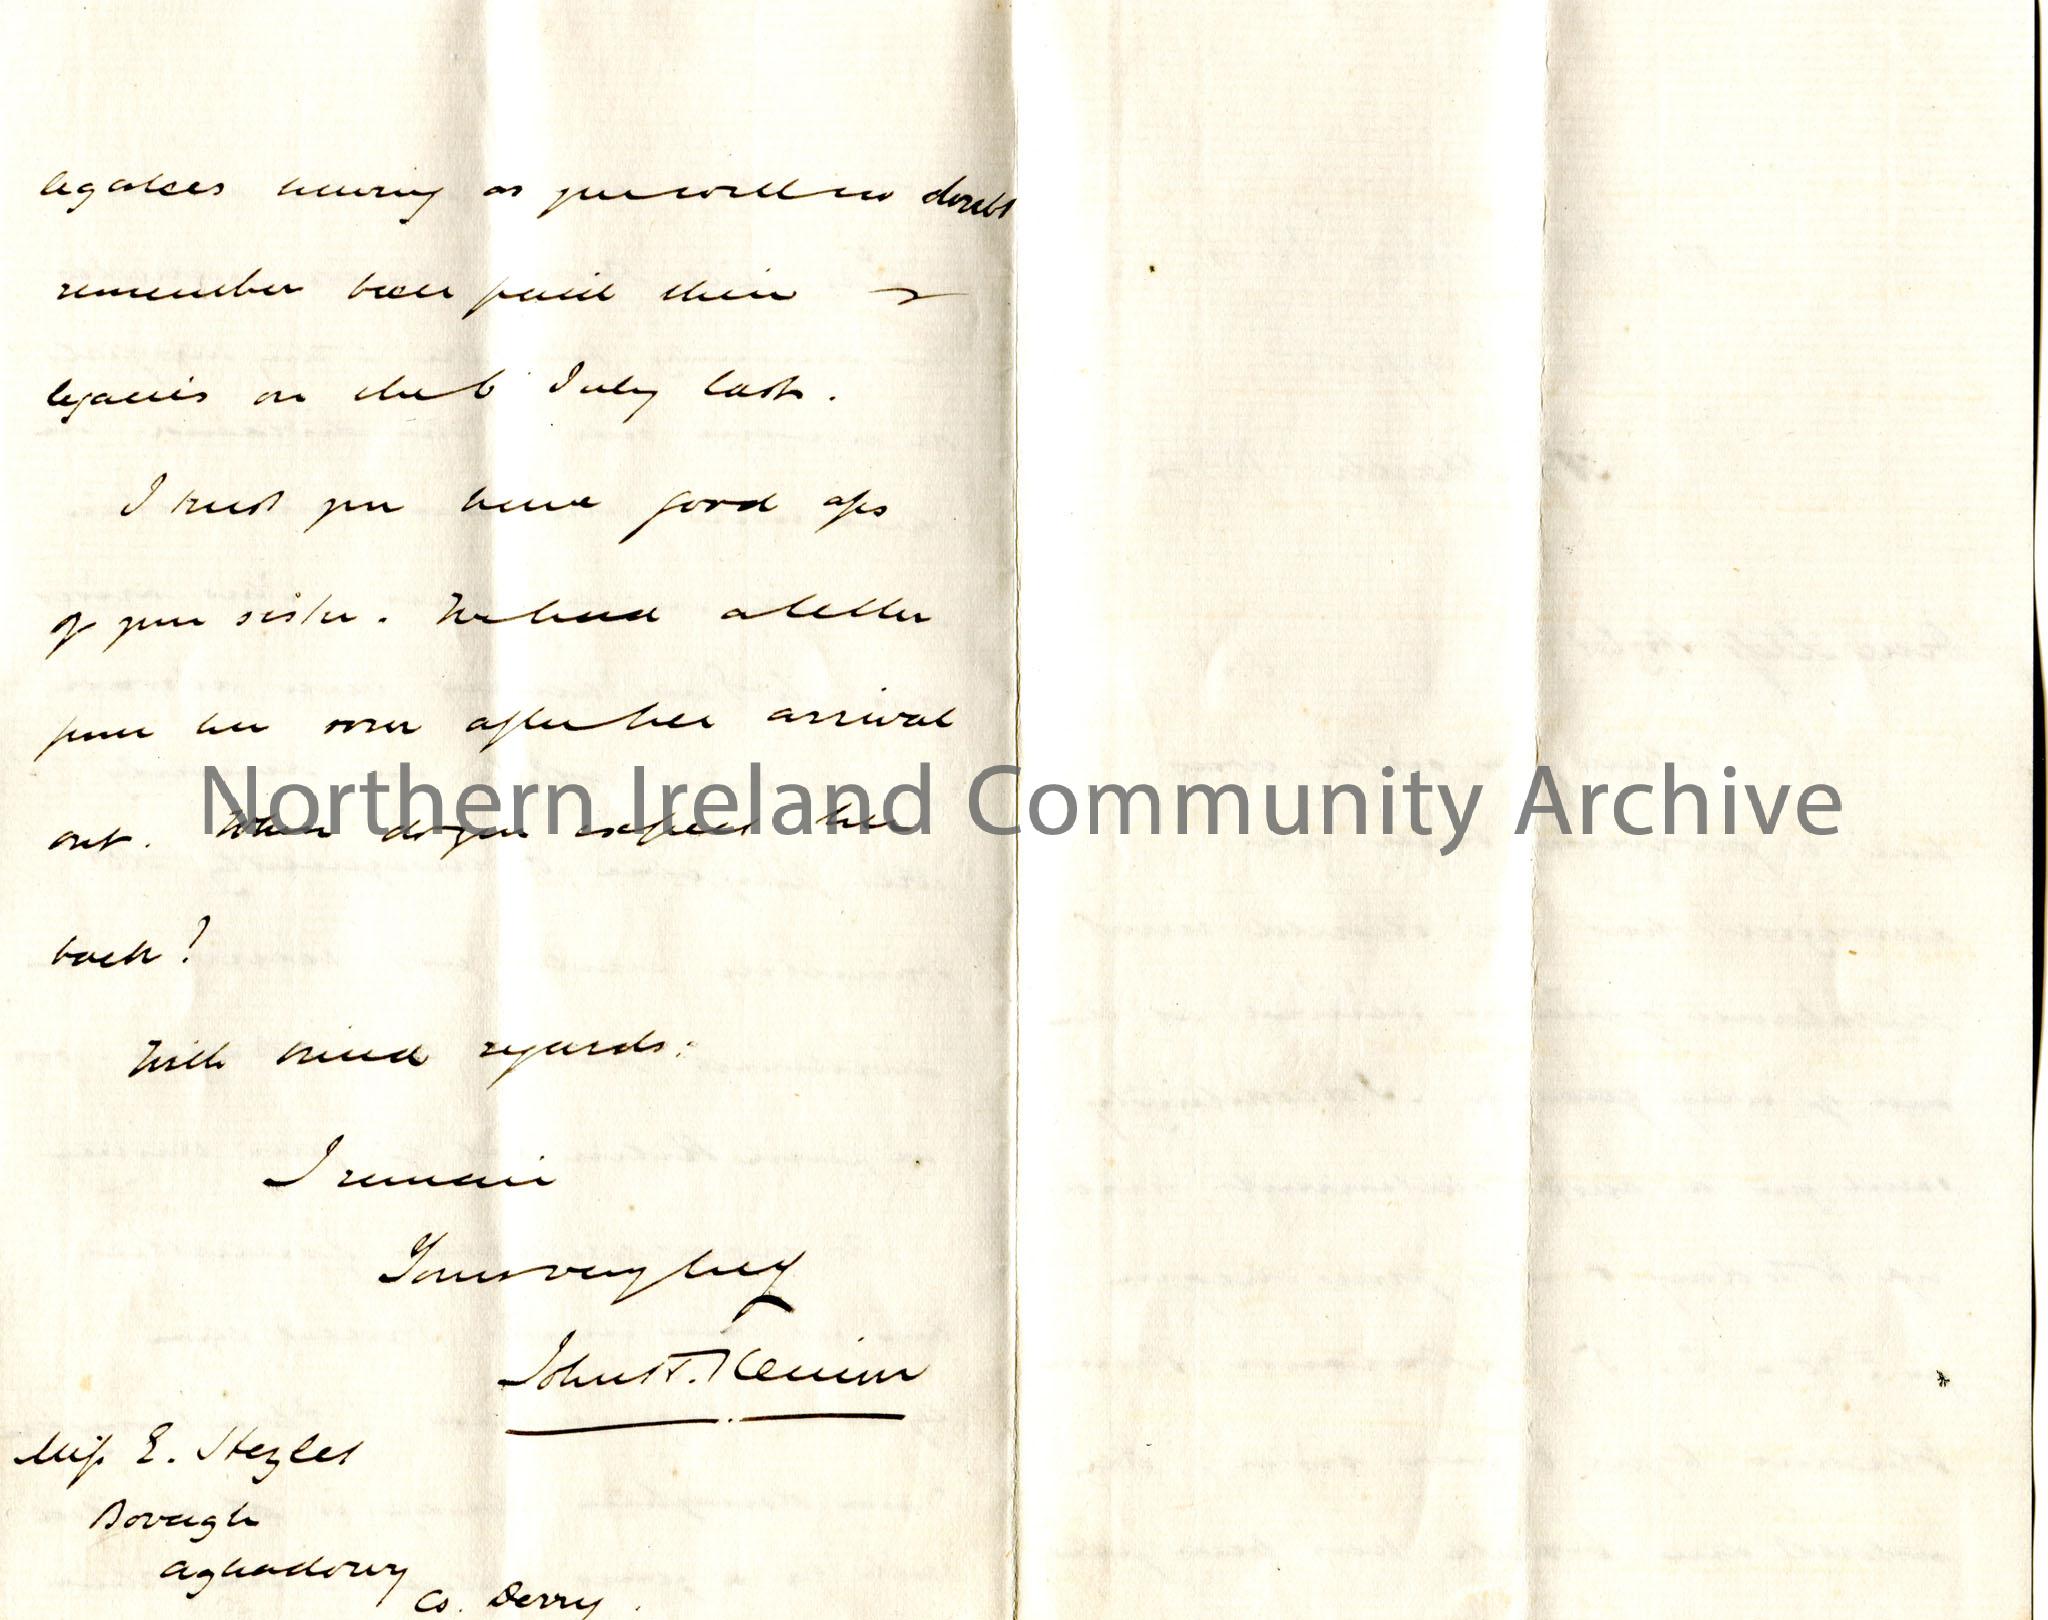 legatees having as you will no doubt
remember been paid their
legacies on the 6 July last.
I trust you have good a/cs
of your sister. We had a letter
from her soon after her arrival
out. When do you expect her
back?
With kind regards:
I remain
Yours very truly
John H.
Miss E. Hezlet
Bovagh
Aghadowey
Co. Derry.
Northern Ireland Community Archive